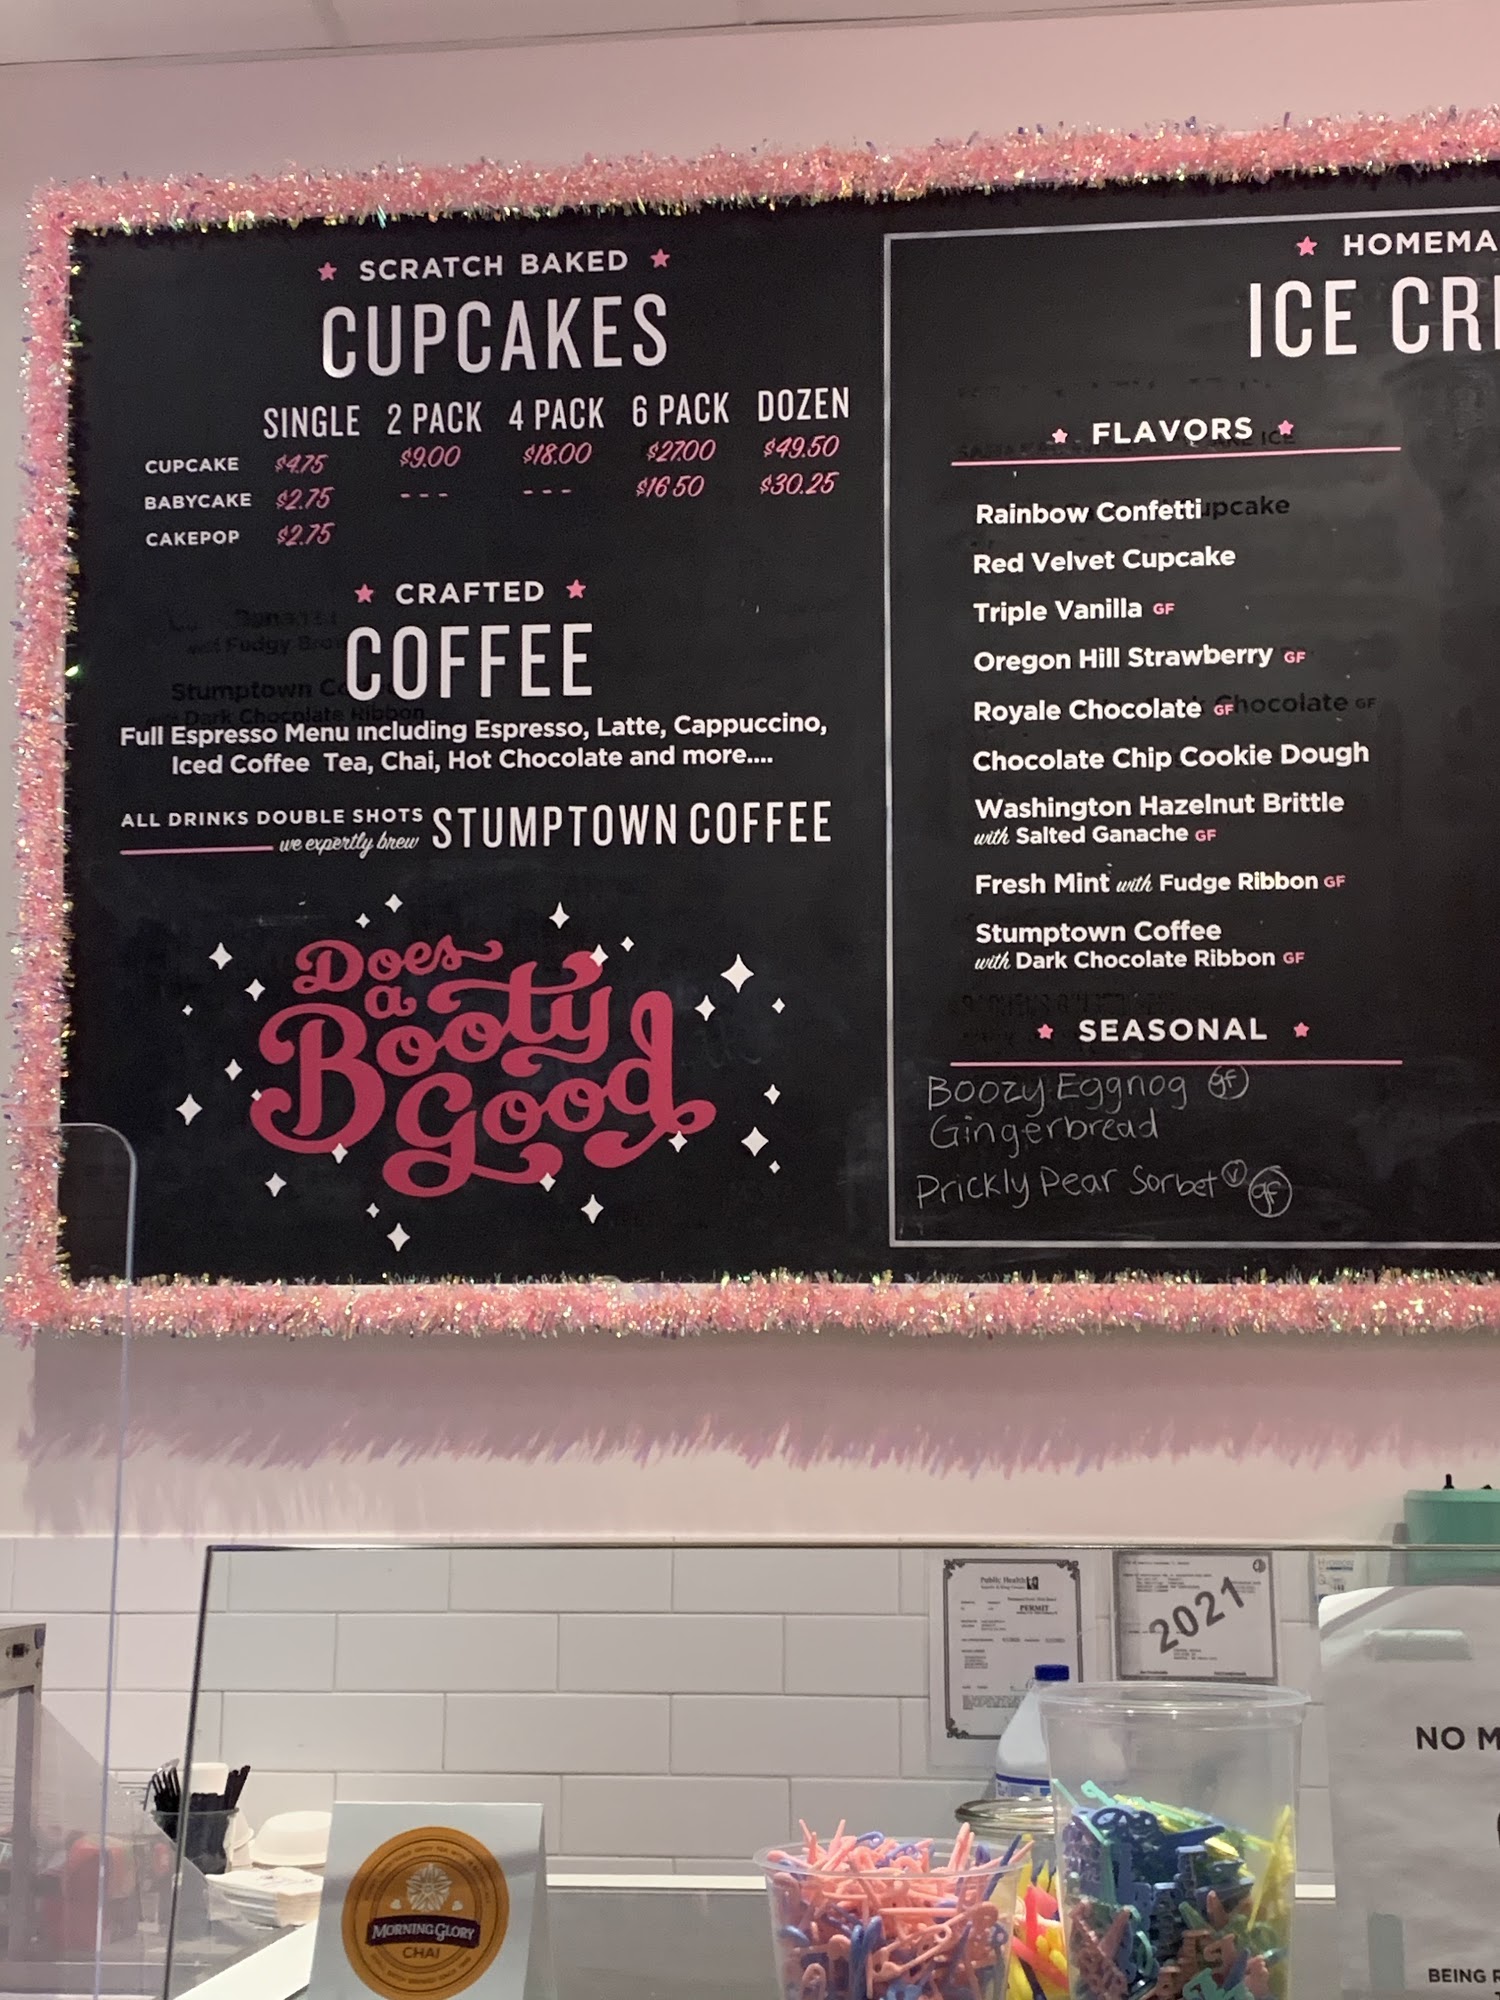 SCRATCH BAKED
CUPCAKES
SINGLE 2 PACK 4 PACK 6 PACK DOZEN
CUPCAKE $4.75 $9.00 $18.00 $27.00 $49.50
BABYCAKE $2.75 --- --- $16.50 $30.25
CAKEPOP $2.75
CRAFTED
COFFEE
Full Espresso Menu including Espresso, Latte, Cappuccino,
Iced Coffee Tea, Chai, Hot Chocolate and more....
ALL DRINKS DOUBLE SHOTS
we expertly brew STUMPTOWN COFFEE
Does
a
Booty
Good
HOMEMA
ICE CRE
FLAVORS
Rainbow Confetti
Red Velvet Cupcake
Triple Vanilla GF
Oregon Hill Strawberry GF
Royale Chocolate GF
Chocolate Chip Cookie Dough
Washington Hazelnut Brittle
with Salted Ganache GF
Fresh Mint with Fudge Ribbon GF
Stumptown Coffee
with Dark Chocolate Ribbon GF
SEASONAL
Boozy Eggnog gf
Gingerbread
Prickly Pear Sorbet V gf
Public Health
PERMIT
2021
NO M
BEING R
MORNING GLORY
CHAI